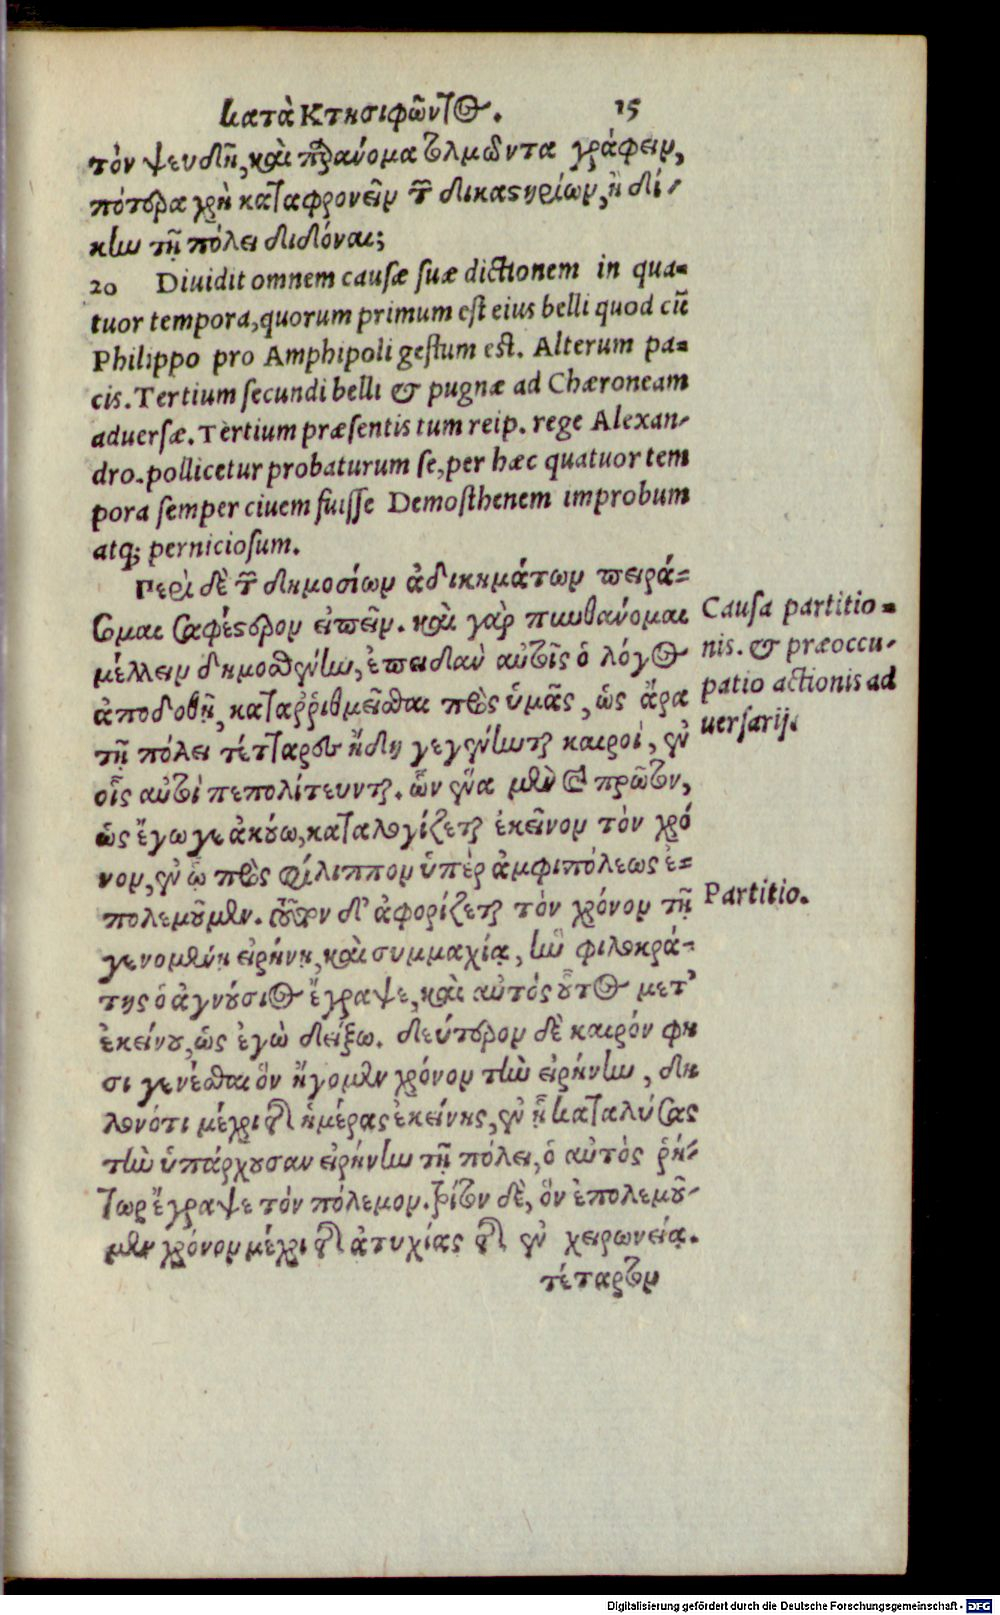 κατὰ Κτησιφῶντος. 15
τὸν ψευδῆ, καὶ παράνομα τολμῶντα γράφειν,
πότερα χρὴ καταφρονεῖν τῶν δικαστηρίων, ἢ δί-
κην τῇ πόλει διδόναι;
20 Diuidit omnem causæ suæ dictionem in qua=
tuor tempora, quorum primum est eius belli quod cũ
Philippo pro Amphipoli gestum est. Alterum pa=
cis. Tertium secundi belli & pugnæ ad Chæroneam
aduersæ. Tertium præsentis tum reip. rege Alexan-
dro. pollicetur probaturum se, per hæc quatuor tem
pora semper ciuem fuisse Demosthenem improbum
atq; perniciosum.
Περὶ δὲ τῶν δημοσίων ἀδικημάτων πειρά=
σομαι σαφέστερον εἰπεῖν. καὶ γὰρ πυνθάνομαι
μέλλειν δημοσθένην, ἐπειδὰν αὐτοῖς ὁ λόγος
ἀποδοθῇ, καταῤῥιθμεῖσθαι πρὸς ὑμᾶς, ὡς ἄρα
τῇ πόλει τέτταρες ἤδη γεγένηνται καιροί, ἐν
οἷς αὐτὸς πεπολίτευνται. ὧν ἕνα μὲν καὶ πρῶτον,
ὡς ἔγωγε ἀκούω, καταλογίζεται ἐκεῖνον τὸν χρό
νον, ἐν ᾧ πρὸς φίλιππον ὑπὲρ ἀμφιπόλεως ἐ=
πολεμοῦμεν. τοῦτον δ' ἀφορίζεται τὸν χρόνον τῇ
γενομένῃ εἰρήνῃ, καὶ συμμαχίᾳ, ἣν φιλοκρά-
της ὁ ἁγνούσιος ἔγραψε, καὶ αὐτὸς οὗτος μετ'
ἐκείνου, ὡς ἐγὼ δείξω. δεύτερον δὲ καιρόν φη
σι γενέσθαι ὃν ἤγομεν χρόνον τὴν εἰρήνην, δη
λονότι μέχρι τῆς ἡμέρας ἐκείνης, ἐν ᾗ καταλύσας
τὴν ὑπάρχουσαν εἰρήνην τῇ πόλει, ὁ αὐτὸς ῥή-
τωρ ἔγραψε τὸν πόλεμον. τρίτον δὲ, ὃν ἐπολεμοῦ-
μεν χρόνον μέχρι τῆς ἀτυχίας τῆς ἐν χειρωνείᾳ.
τέταρτον
Causa partitio=
nis. & præoccu-
patio actionis ad
uersarij.
Partitio.
Digitalisierung gefördert durch die Deutsche Forschungsgemeinschaft - DFG